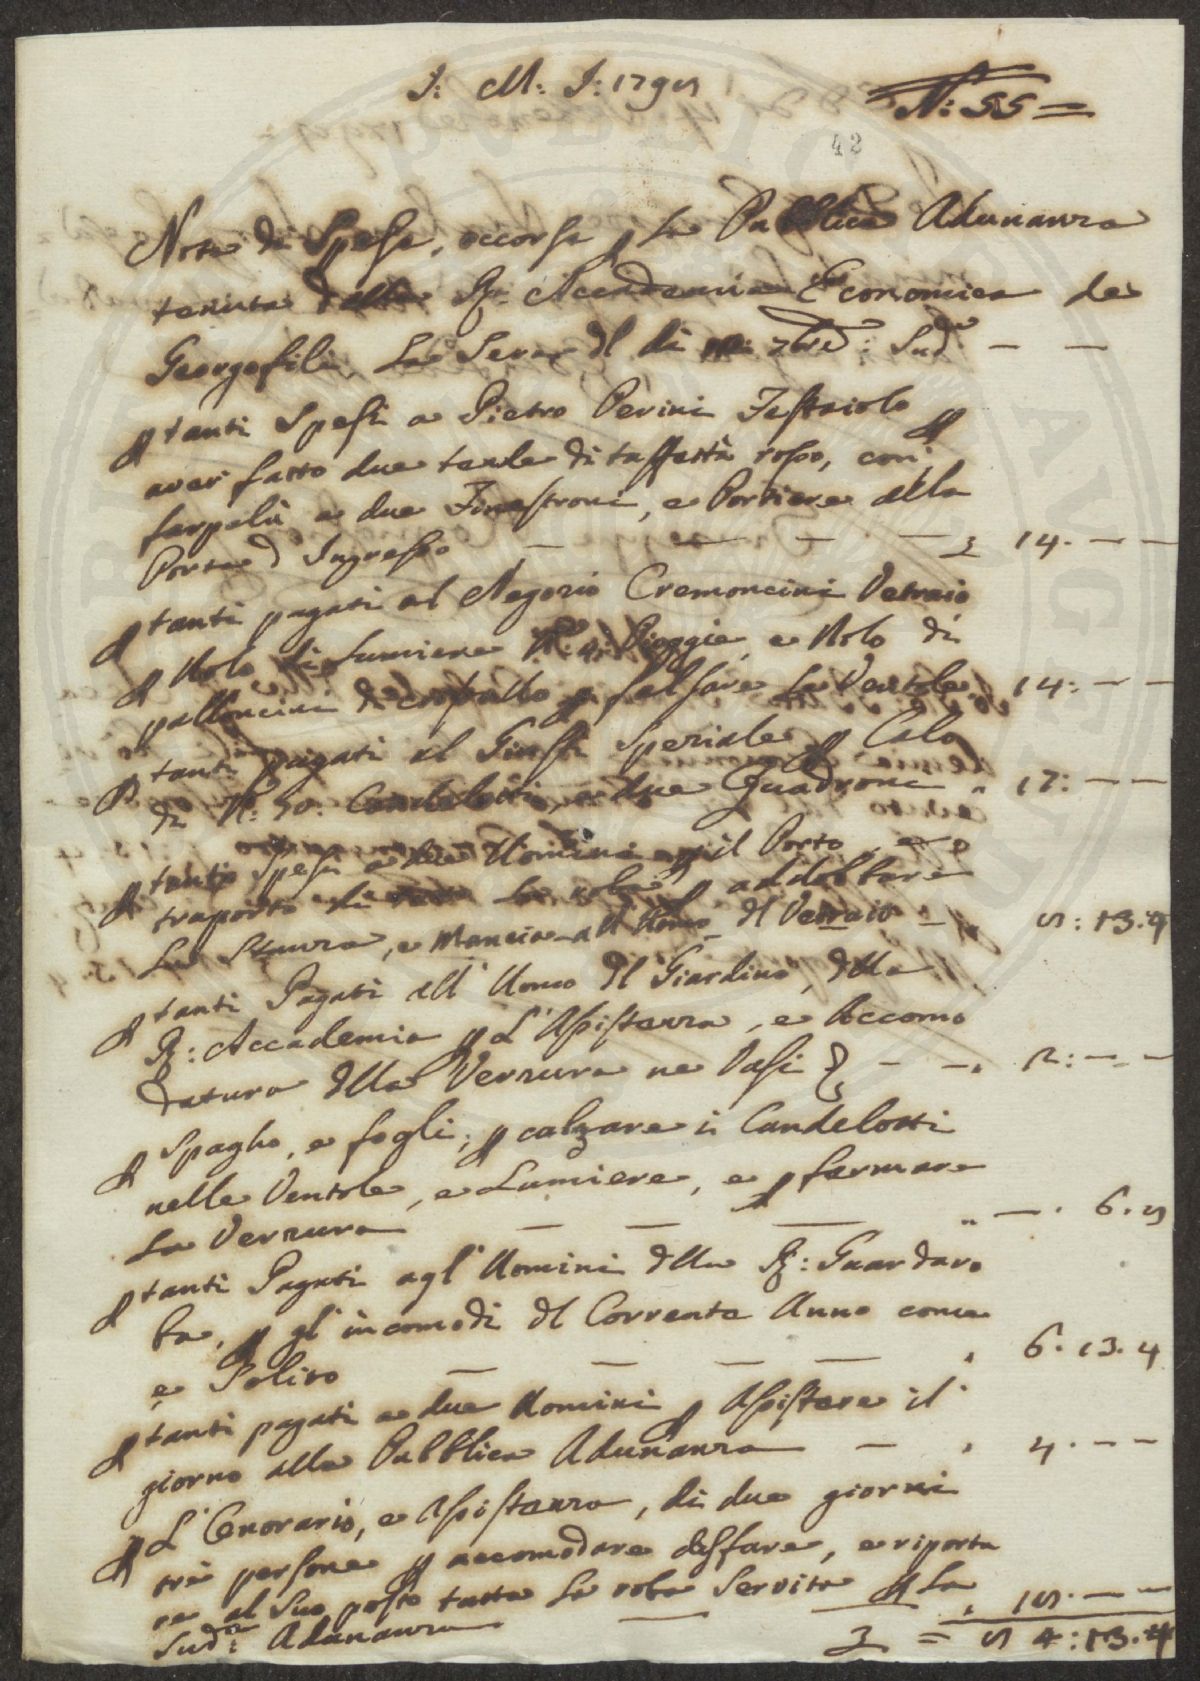 J: M: J: 1795
N: 55 =
42
Nota di Spese, occorse p La Pubblica Adunanza
tenuta dalla R: Accademia Economica de
Georgofili, La Sera dl di 7bre: Sudo — —
p tanti Spesi a Pietro Perini Festaiolo p
aver fatto due tende di taffettà rosso, con
farpalà a due Finestroni, e Portiere alla
Porta d Ingresso — — — — £ 14. — —
p tanti pagati al Negozio Cremoncini Vetraio
p Nolo di Lumiere N: Pioggie, e Nolo di
palloncini di cristallo p La Ventole „ 14: — —
p tanti pagati al Giusti Speziale p Calo
di N: 50: Candelotti, e due Quadroni „ 17: — —
p tanti Spesi a due Uomini p il Porto, e
traporto di La roba p addobbare
La Stanza, e Mancia all Uomo dl Vetraio — „ 5: 13. 4
p tanti Pagati all' Uomo dl Giardino, dlla
R: Accademia p L' Assistenza, e Accomo
datura dlla Verzura ne Vasi — — „ 2: — —
p Spagho, e fogli, p calzare i Candelotti
nelle Ventole, e Lumiere, e p farmare
La Verzura — — — „ —. 6. 8
p tanti Pagati agl' Uomini dlla R: Guardaro
ba, p gl' incomodi dl Corrente Anno come
e Solito — — — — „ 6. 13. 4
p tanti pagati a due Uomini p Assistere il
giorno alla Pubblica Adunanza — „ 4. — —
p L' Onorario, e Assistenza, di due giorni
trè persone p accomodare disfare, e riporta
re al Suo posto tutta La roba Servita p La
Suda: Adunanza — — „ 15. — —
£ = 4: 13. 4